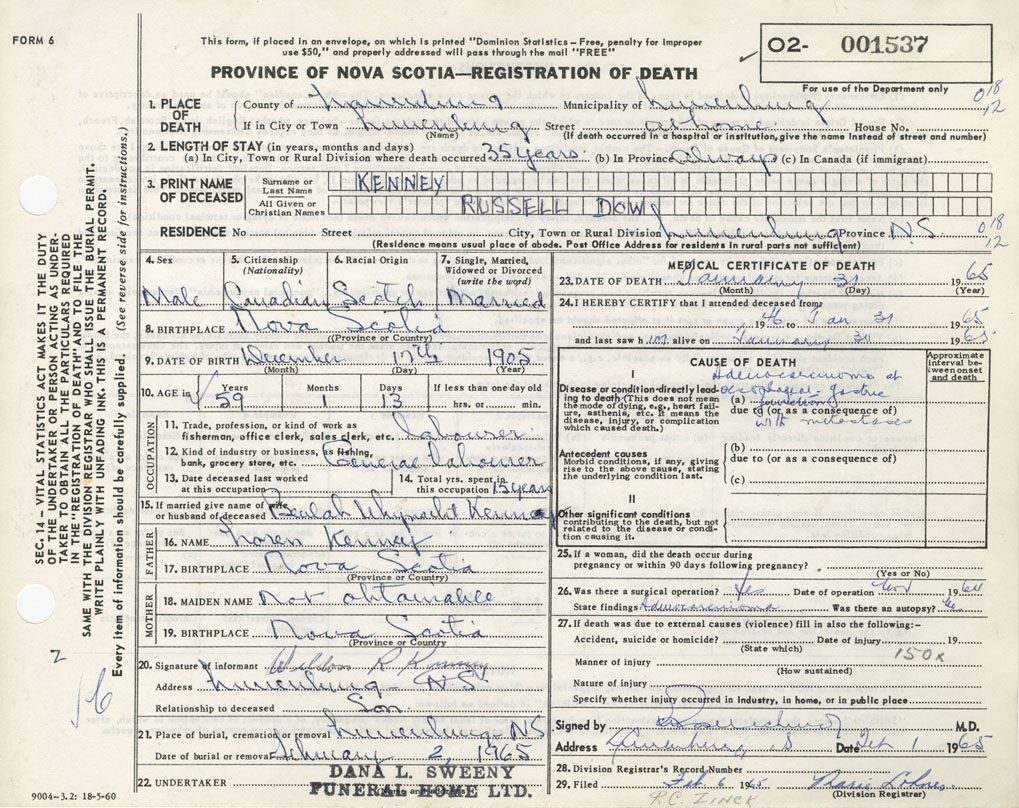 FORM 6
This form, if placed in an envelope, on which is printed "Dominion Statistics – Free, penalty for improper
use $50," and properly addressed will pass through the mail "FREE"
O2- 001537
PROVINCE OF NOVA SCOTIA—REGISTRATION OF DEATH
For use of the Department only
1. PLACE OF DEATH
County of Lunenburg Municipality of Lunenburg
018
12
If in City or Town Lunenburg Street at home House No.
(Name) (If death occurred in a hospital or institution, give the name instead of street and number)
2. LENGTH OF STAY (in years, months and days)
(a) In City, Town or Rural Division where death occurred 35 years (b) In Province always (c) In Canada (if immigrant)
3. PRINT NAME OF DECEASED
Surname or Last Name KENNEY
All Given or Christian Names RUSSELL DOW
RESIDENCE No Street City, Town or Rural Division Lunenburg Province N.S. 018
12
(Residence means usual place of abode. Post Office Address for residents in rural parts not sufficient)
4. Sex Male
5. Citizenship (Nationality) Canadian
6. Racial Origin Scotch
7. Single, Married, Widowed or Divorced (write the word) Married
8. BIRTHPLACE Nova Scotia
(Province or Country)
9. DATE OF BIRTH December 17th 1905
(Month) (Day) (Year)
10. AGE in Years 59 Months 1 Days 13 If less than one day old hrs. or min.
OCCUPATION
11. Trade, profession, or kind of work as
fisherman, office clerk, sales clerk, etc. labourer
12. Kind of industry or business, as fishing,
bank, grocery store, etc. General Labourer
13. Date deceased last worked
at this occupation
14. Total yrs. spent in
this occupation 15 years
15. If married give name of wife
or husband of deceased Beulah Whynacht Kenney
FATHER
16. NAME Loren Kenney
17. BIRTHPLACE Nova Scotia
(Province or Country)
MOTHER
18. MAIDEN NAME Not obtainable
19. BIRTHPLACE Nova Scotia
(Province or Country)
20. Signature of informant Weldon R Kenney
Address Lunenburg N.S
Relationship to deceased Son
21. Place of burial, cremation or removal Lunenburg NS
Date of burial or removal February 2, 1965
22. UNDERTAKER DANA L. SWEENY
FUNERAL HOME LTD.
(Name and address)
9004-3.2: 18-5-60
MEDICAL CERTIFICATE OF DEATH
23. DATE OF DEATH January 31 1965
(Month) (Day) (Year)
24. I HEREBY CERTIFY that I attended deceased from
, 19 to Jan 31 1965
and last saw him alive on January 1965
CAUSE OF DEATH
Approximate interval between onset and death
I
Disease or condition directly leading to death (This does not mean
the mode of dying, e.g., heart failure, asthenia, etc. It means the
disease, injury, or complication
which caused death.)
Adenocarcinoma at
(a) esophageal-gastric
junction
due to (or as a consequence of)
with metastases
Antecedent causes
Morbid conditions, if any, giving
rise to the above cause, stating
the underlying condition last.
(b)
due to (or as a consequence of)
(c)
II
Other significant conditions
contributing to the death, but not
related to the disease or condition
causing it.
25. If a woman, did the death occur during
pregnancy or within 90 days following pregnancy?
(Yes or No)
26. Was there a surgical operation? Yes Date of operation Nov 1964
State findings Adenocarcinoma Was there an autopsy?
27. If death was due to external causes (violence) fill in also the following:-
Accident, suicide or homicide? Date of injury 19
(State which) 150x
Manner of injury
(How sustained)
Nature of injury
Specify whether injury occurred in industry, in home, or in public place
Signed by M.D.
Address Lunenburg Date Feb 1 1965
28. Division Registrar's Record Number
29. Filed Feb 6 1965
(Division Registrar)
R.C. ZINCK
SEC. 14 – VITAL STATISTICS ACT MAKES IT THE DUTY
OF THE UNDERTAKER OR PERSON ACTING AS UNDERTAKER
TO OBTAIN ALL THE PARTICULARS REQUIRED
IN THE "REGISTRATION OF DEATH" AND TO FILE THE
SAME WITH THE DIVISION REGISTRAR WHO SHALL ISSUE THE BURIAL PERMIT.
WRITE PLAINLY WITH UNFADING INK. THIS IS A PERMANENT RECORD.
Every item of information should be carefully supplied. (See reverse side for instructions.)
2